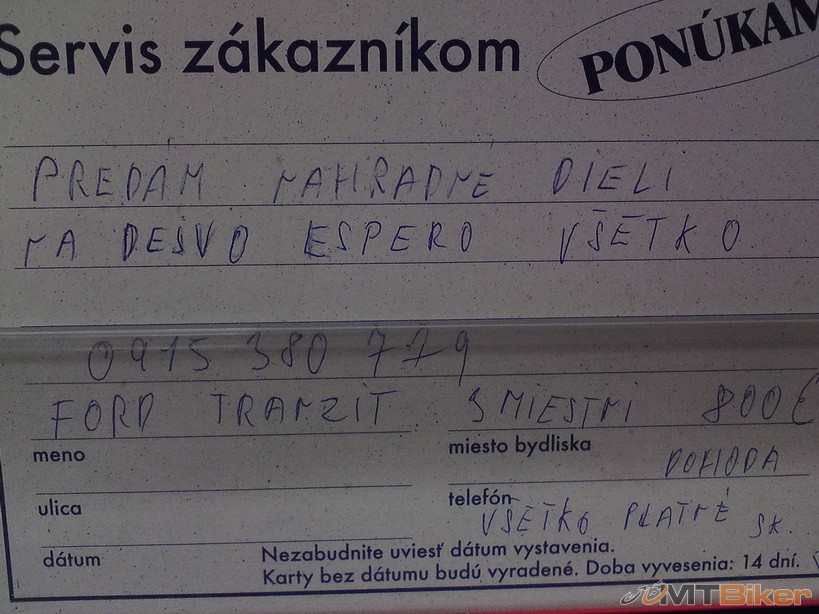 Servis zákazníkom PONÚKAM
PREDÁM NAHRADNÉ DIELI
NA DESVO ESPERO VŠETKO
0915 380 779
FORD TRANZIT 3 MIESTNI 800 €
meno
miesto bydliska DOHODA
ulica
telefón VŠETKO PLATNÉ SK.
dátum
Nezabudnite uviesť dátum vystavenia.
Karty bez dátumu budú vyradené. Doba vyvesenia: 14 dní.
MTBiker